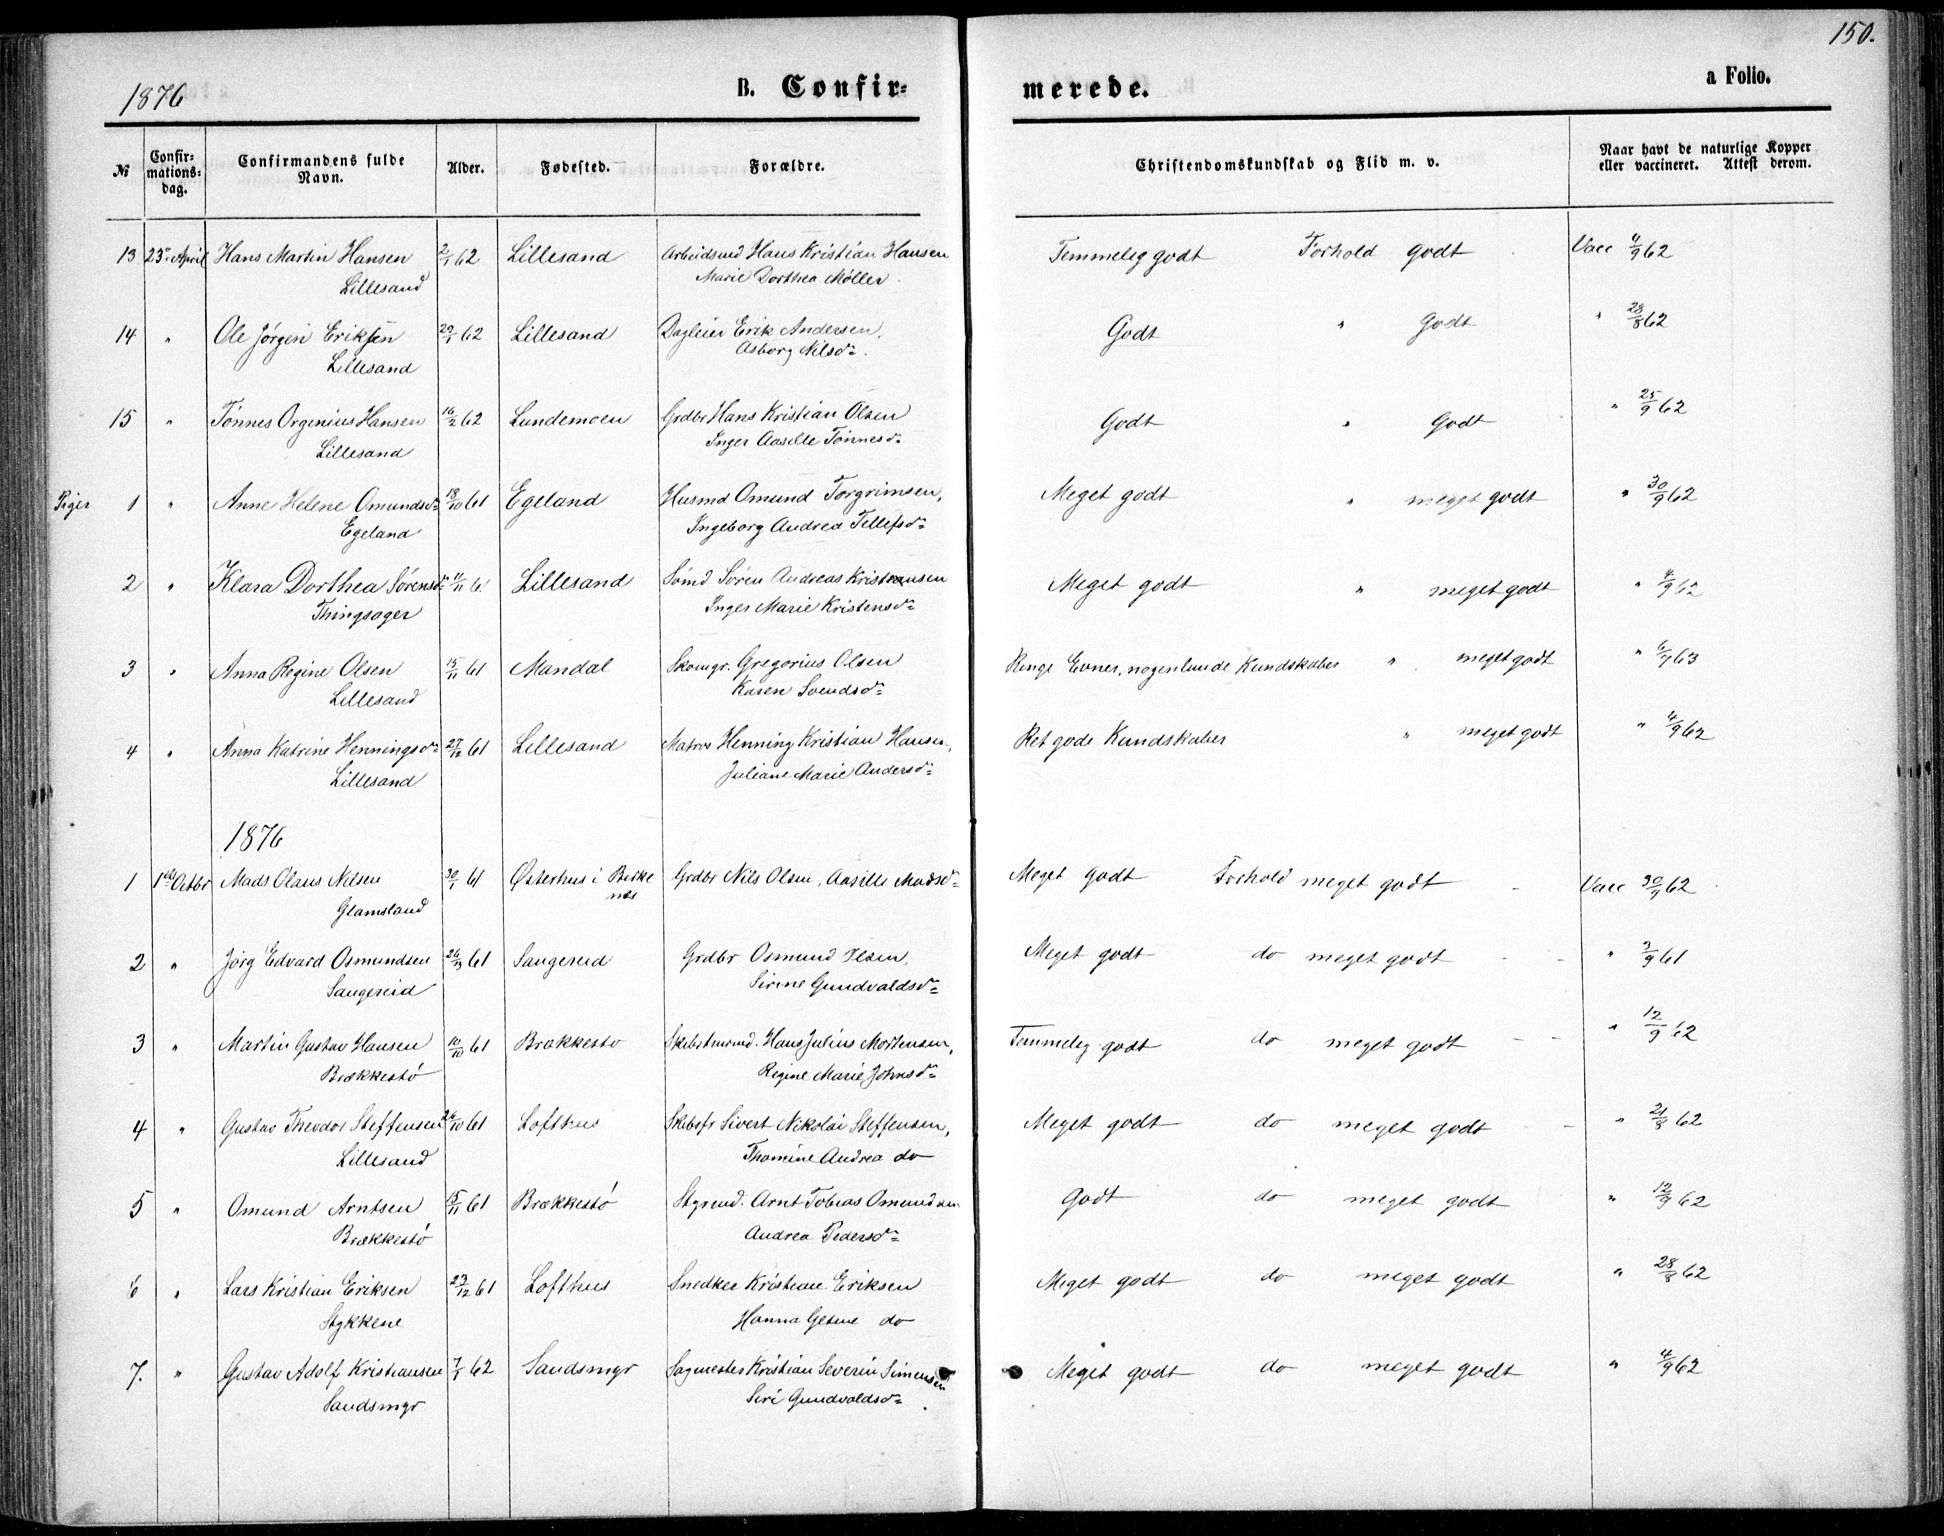 150.
1876 B. Confir- merede. a Folio.
№ Confirmationsdag. Confirmandens fulde Navn. Alder. Fødested. Forældre. Christendomskundskab og Flid m. v. Naar havt de naturlige Kopper eller vaccineret. Attest derom.
13 23de April Hans Martin Hansen 2/1 62 Lillesand Arbeidsmd Hans Kristian Hansen Temmelig godt Forhold godt Vacc 11/9 62
Lillesand Marie Dorthea Møller
14 " Ole Jørgen Eriksen 29/1 62 Lillesand Dagleier Erik Andersen, Godt " Godt " 28/8 62
Lillesand Asborg Nilsdr.
15 " Tønnes Orgenius Hansen 16/2 62 Lundemoen Grdbr Hans Kristian Olsen Godt " Godt " 25/9 62
Lillesand Inger Aasille Tønnesdr
Piger 1 " Anne Helene Omundsdr 18/10 61 Egeland Husmd Omund Torgrimsen, Meget godt " meget godt " 30/9 62
Egeland Ingeborg Andrea Tellefsdr
2 " Klara Dorthea Sørensdr 11/11 61 Lillesand Sømd Søren Andreas Kristensen Meget godt " meget godt " 4/9 62
Thingsager Inger Marie Kristensdr
3 " Anna Regine Olsen 15/11 61 Mandal Skomgr. Gregorius Olsen Ringe Evner, nogenlunde Kundskaber " meget godt " 6/7 63
Lillesand Karen Svendsdr
4 " Anna Katrine Henningsdr 27/12 61 Lillesand Matros Henning Kristian Hansen, Ret gode Kundskaber " meget godt " 4/9 62
Lillesand Juliane Marie Andersdr
1876
1 1ste Octbr Mads Olaus Nilsen 30/1 61 Østerhus i Birkenæs Grdbr Nils Olsen, Aasille Madsdr Meget godt Forhold meget godt - Vacc 30/9 62
Glamsland
2 " Jørg Edvard Osmundsen 61 Saugereid Grdbr Osmund Ilsen, Meget godt do meget godt - - " 3/9 61
Saugereid Sirine Gundvaldsdr
3 " Martin Gustav Hansen 10/10 61 Brækkestø Skibstmrmd. Hans Julius Mortensen, Temmelig godt do meget godt - - " 12/9 62
Brækkestø Regine Marie Johnsdr
4 " Gustav Theodor Steffensen 24/10 61 Lofthus Skibsfr Sivert Nikolai Steffensen, Meget godt do meget godt - " 21/8 62
Lillesand Thomine Andrea do
5 " Omund Arntsen 15/11 61 Brækkestø Styrmd. Arnt Tobias Omundsen Godt do meget godt " 12/9 62
Brækkestø Andrea Pedersdr
6 " Lars Kristian Eriksen 23/12 61 Lofthus Snedker Kristian Eriksen Meget godt do meget godt " 28/8 62
Stykkene Hanna do
7. " Gustav Adolf Kristiansen 7/1 62 Sandsmyr Sagmester Kristian Severin Simensen Meget godt do meget godt " 4/9 62
Sandsmyr Siri Gundvaldsdr